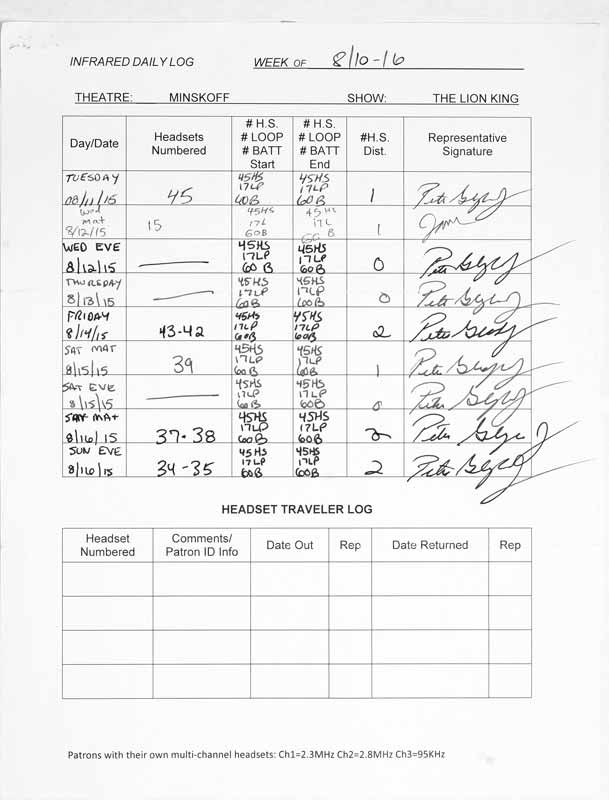 INFRARED DAILY LOG WEEK OF 8/10-16
THEATRE: MINSKOFF SHOW: THE LION KING
Day/Date Headsets Numbered # H.S. # LOOP # BATT Start # H.S. # LOOP # BATT End #H.S. Dist. Representative Signature
TUESDAY 08/11/15 45 45HS 17LP 60B 45HS 17LP 60B 1
Wed mat 8/12/15 15 45HS 17L 60B 45HS 17L 1
WED EVE 8/12/15 — 45HS 17LP 60B 45HS 17LP 60B 0
THURSDAY 8/13/15 — 45HS 17LP 60B 45HS 17LP 60B 0
FRIDAY 8/14/15 43-42 45HS 17LP 60B 45HS 17LP 60B 2
SAT MAT 8/15/15 39 45HS 17LP 60B 45HS 17LP 60B 1
SAT EVE 8/15/15 — 45HS 17LP 60B 45HS 17LP 60B 0
MAT 8/16/15 37-38 45HS 17LP 60B 45HS 17LP 60B 2
SUN EVE 8/16/15 34-35 45HS 17LP 60B 45HS 17LP 60B 2
HEADSET TRAVELER LOG
Headset Numbered Comments/ Patron ID Info Date Out Rep Date Returned Rep
Patrons with their own multi-channel headsets: Ch1=2.3MHz Ch2=2.8MHz Ch3=95KHz